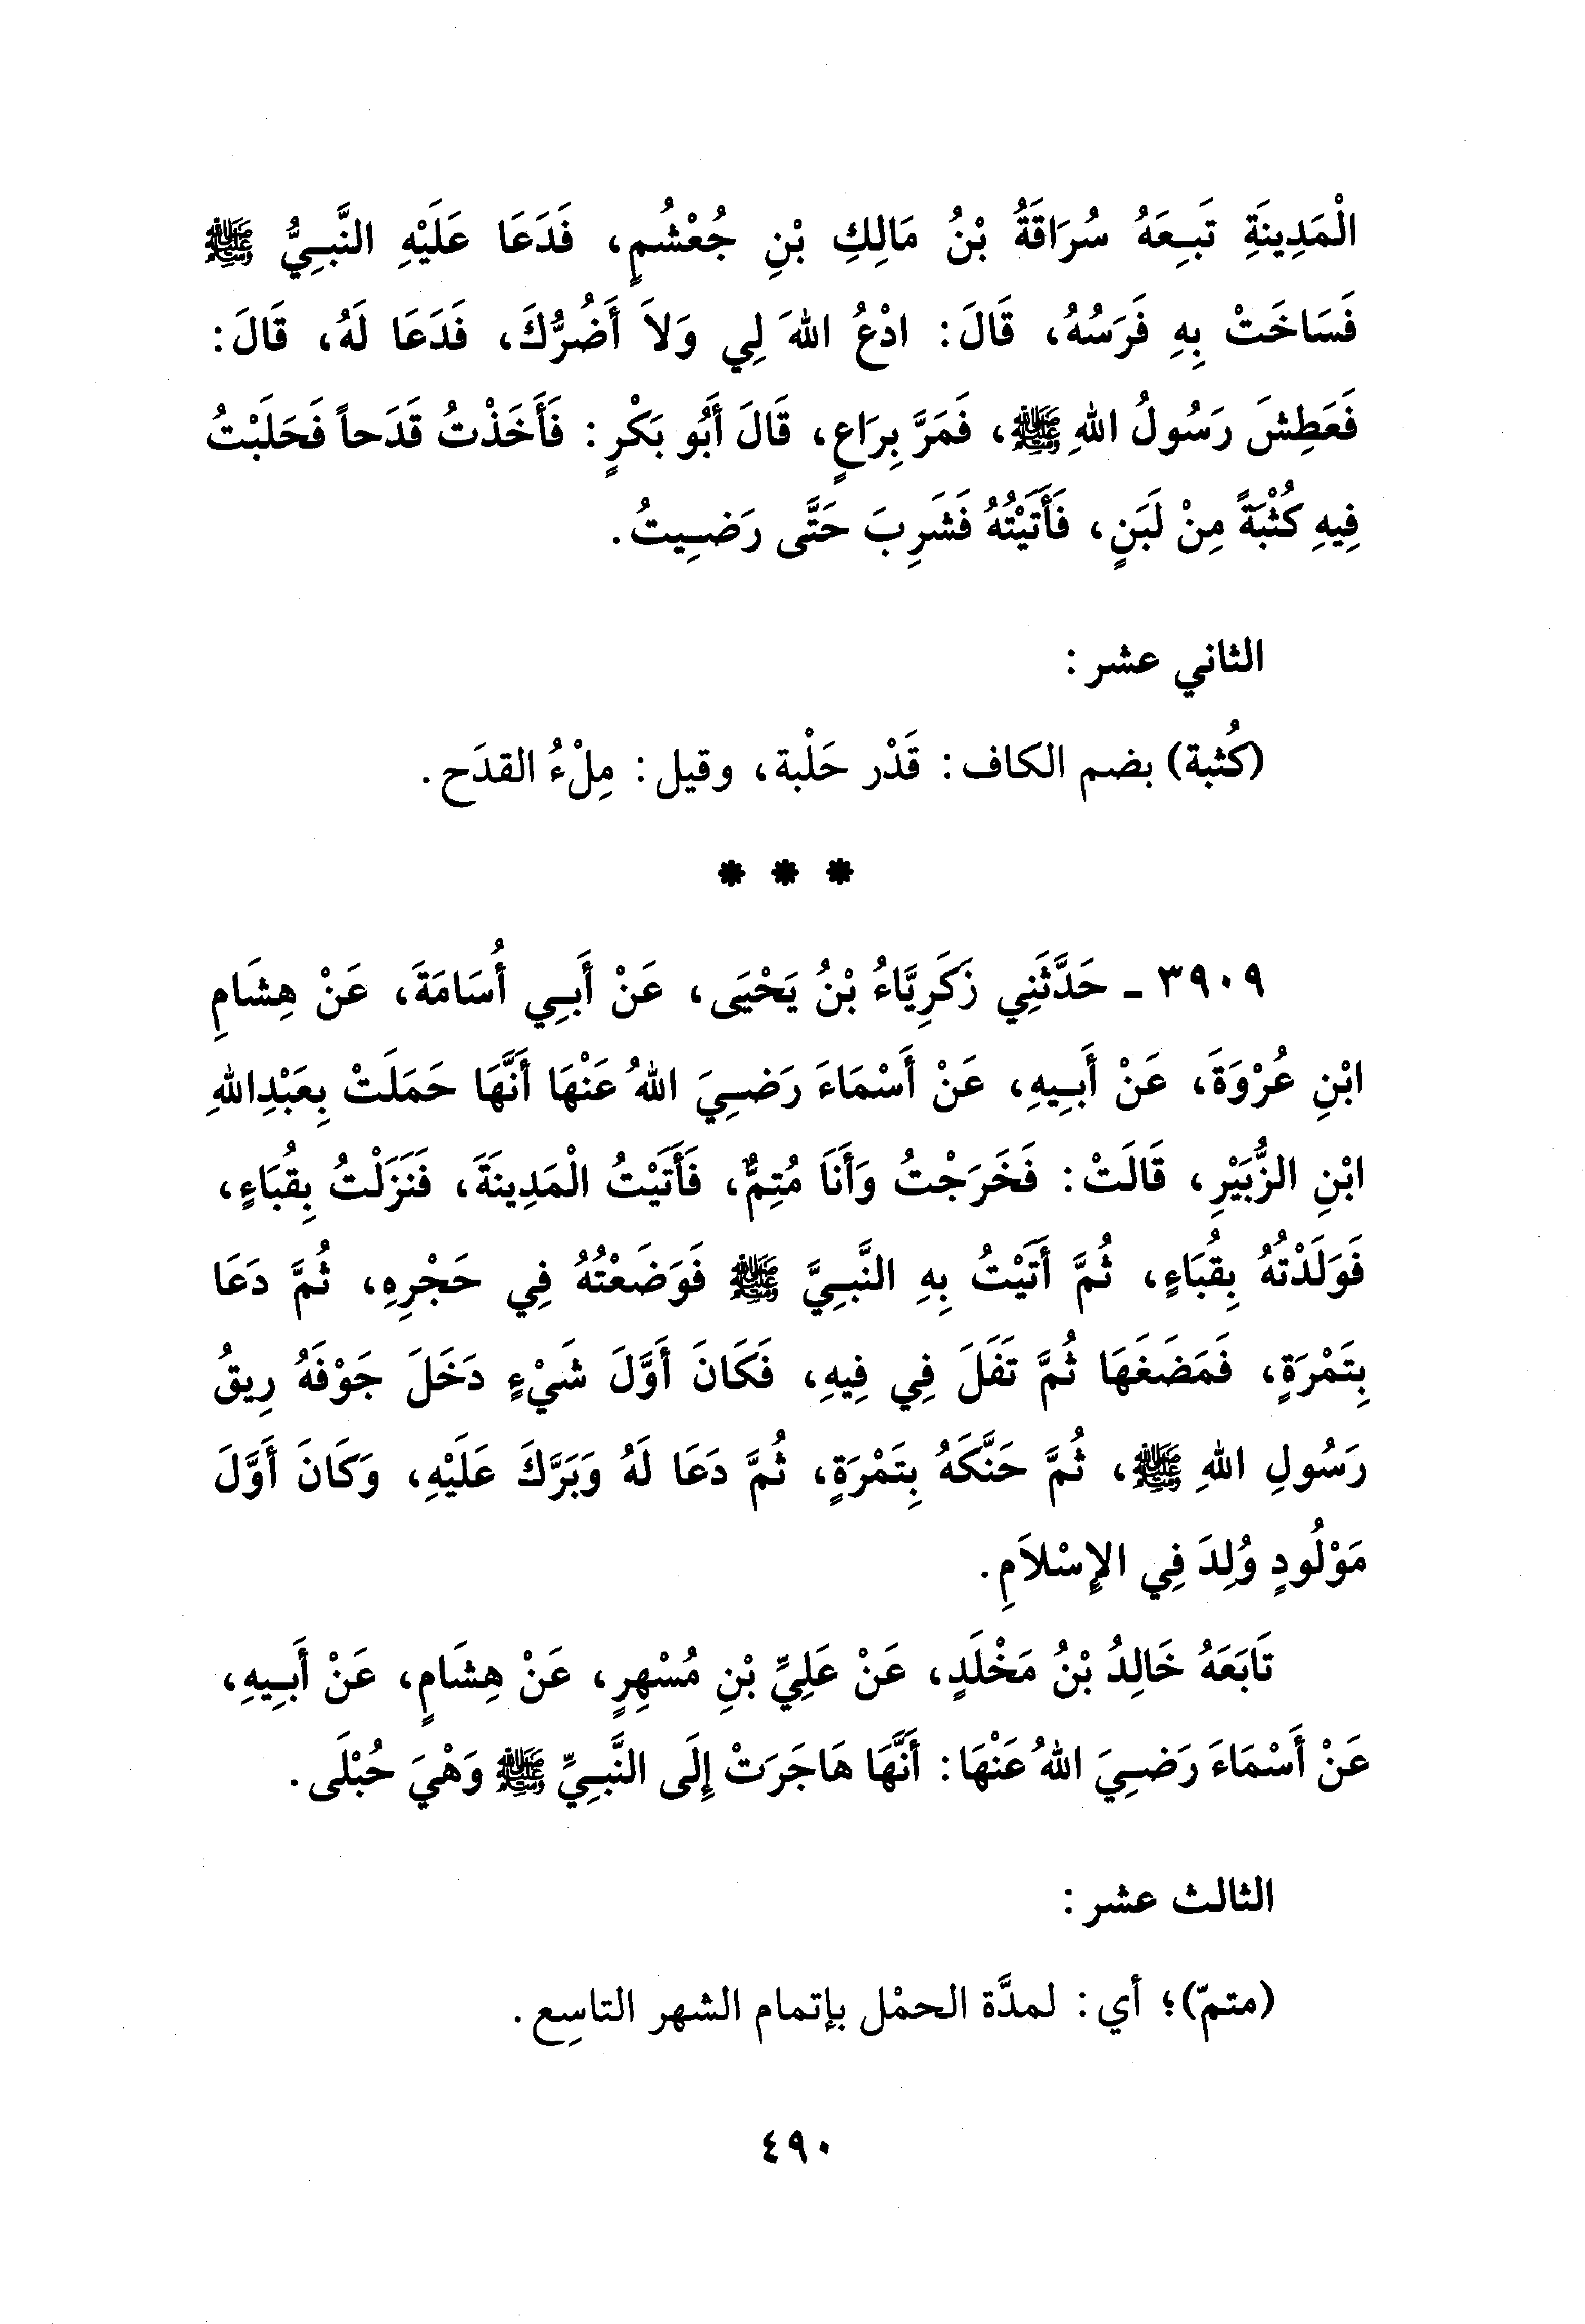 الْمَدِينَةِ تَبِعَهُ سُرَاقَةُ بْنُ مَالِكِ بْنِ جُعْشُمٍ، فَدَعَا عَلَيْهِ النَّبِيُّ ﷺ
فَسَاخَتْ بِهِ فَرَسُهُ، قَالَ: ادْعُ اللهَ لِي وَلاَ أَضُرُّكَ، فَدَعَا لَهُ، قَالَ:
فَعَطِشَ رَسُولُ اللهِ ﷺ، فَمَرَّ بِرَاعٍ، قَالَ أَبُو بَكْرٍ: فَأَخَذْتُ قَدَحاً فَحَلَبْتُ
فِيهِ كُثْبَةً مِنْ لَبَنٍ، فَأَتَيْتُهُ فَشَرِبَ حَتَّى رَضِيتُ.
الثاني عشر:
(كُثبة) بضم الكاف: قَدْر حَلْبة، وقيل: مِلْءُ القدَح.
* * *
٣٩٠٩ - حَدَّثَنِي زَكَرِيَّاءُ بْنُ يَحْيَى، عَنْ أَبِي أُسَامَةَ، عَنْ هِشَامِ
ابْنِ عُرْوَةَ، عَنْ أَبِيهِ، عَنْ أَسْمَاءَ رَضِيَ اللهُ عَنْهَا أَنَّهَا حَمَلَتْ بِعَبْدِاللهِ
ابْنِ الزُّبَيْرِ، قَالَتْ: فَخَرَجْتُ وَأَنَا مُتِمٌّ، فَأَتَيْتُ الْمَدِينَةَ، فَنَزَلْتُ بِقُبَاءٍ،
فَوَلَدْتُهُ بِقُبَاءٍ، ثُمَّ أَتَيْتُ بِهِ النَّبِيَّ ﷺ فَوَضَعْتُهُ فِي حَجْرِهِ، ثُمَّ دَعَا
بِتَمْرَةٍ، فَمَضَغَهَا ثُمَّ تَفَلَ فِي فِيهِ، فَكَانَ أَوَّلَ شَيْءٍ دَخَلَ جَوْفَهُ رِيقُ
رَسُولِ اللهِ ﷺ، ثُمَّ حَنَّكَهُ بِتَمْرَةٍ، ثُمَّ دَعَا لَهُ وَبَرَّكَ عَلَيْهِ، وَكَانَ أَوَّلَ
مَوْلُودٍ وُلِدَ فِي الإِسْلاَمِ.
تَابَعَهُ خَالِدُ بْنُ مَخْلَدٍ، عَنْ عَلِيِّ بْنِ مُسْهِرٍ، عَنْ هِشَامٍ، عَنْ أَبِيهِ،
عَنْ أَسْمَاءَ رَضِيَ اللهُ عَنْهَا: أَنَّهَا هَاجَرَتْ إِلَى النَّبِيِّ ﷺ وَهْيَ حُبْلَى.
الثالث عشر:
(متمّ)؛ أي: لمدَّة الحمْل بإتمام الشهر التاسِع.
٤٩٠